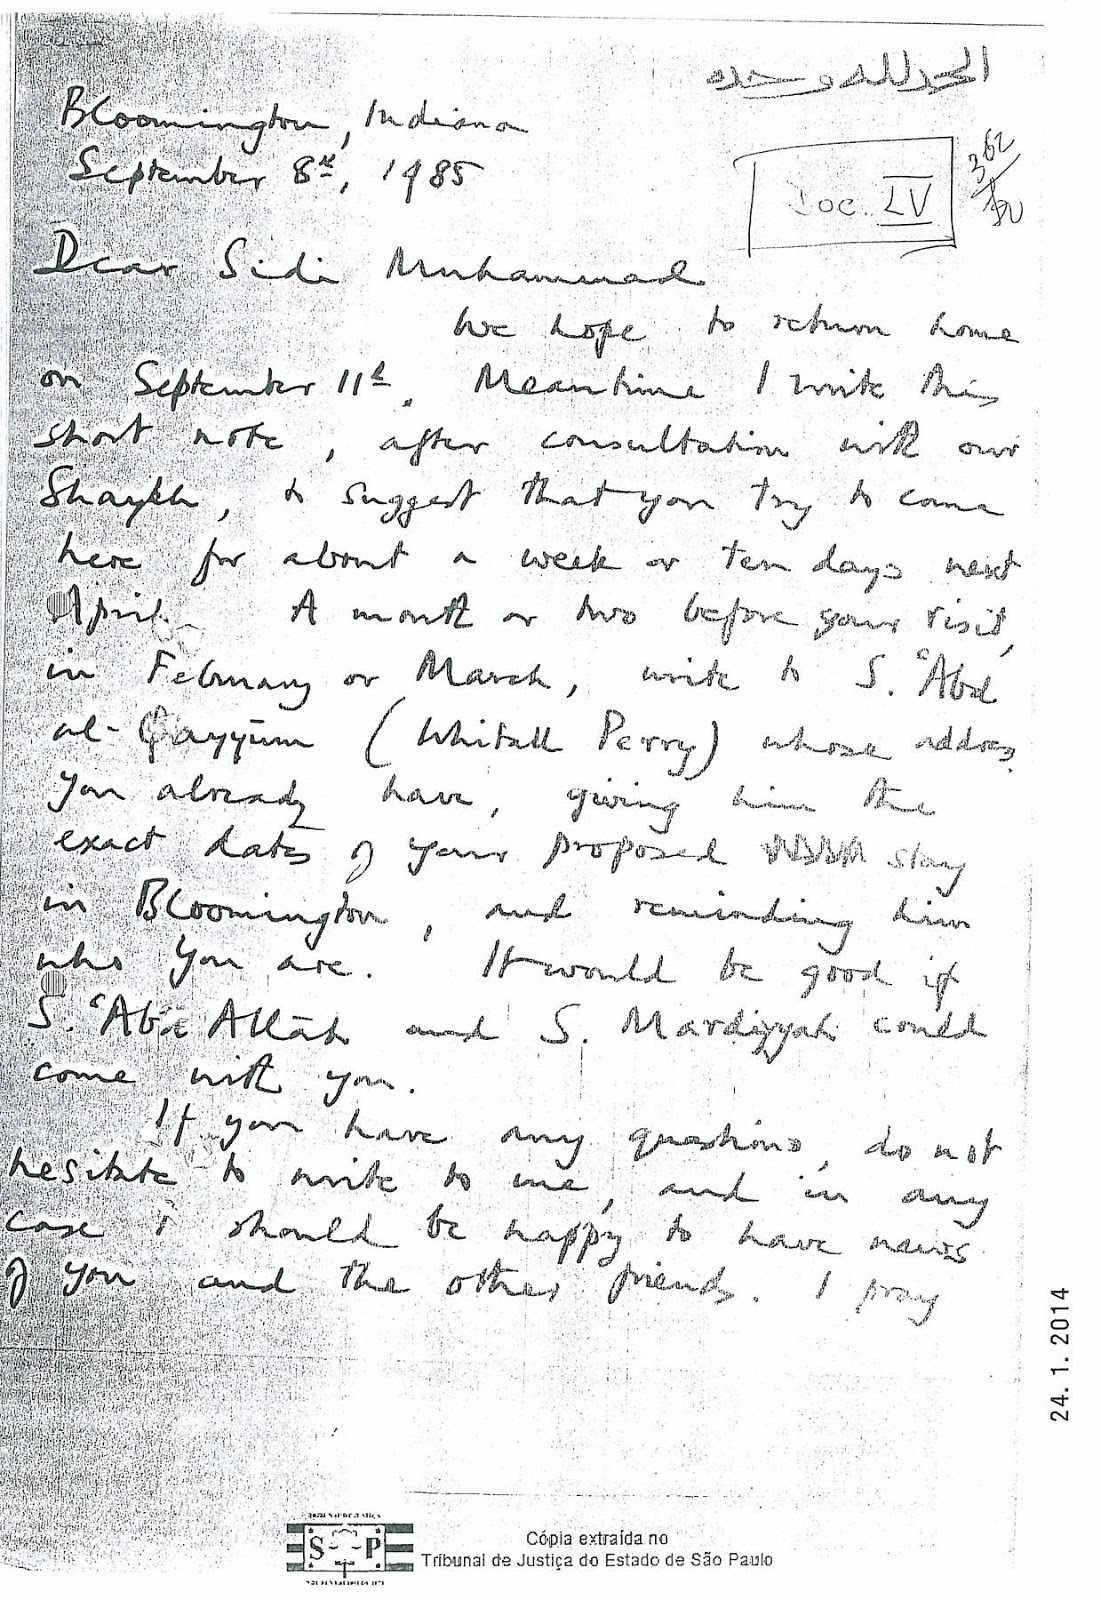 الحمد لله وحده
Bloomington, Indiana
September 8th, 1985
Doc. LV
362
Dear Sidi Muhammad
We hope to return home
on September 11th. Meantime I write this
short note, after consultation with our
Shaykh, to suggest that you try to come
here for about a week or ten days next
April. A month or two before your visit,
in February or March, write to S. ʿAbd
al-Qayyūm (Whitall Perry) whose address
you already have, giving him the
exact dates of your proposed stay
in Bloomington, and reminding him
who you are. It would be good if
S. ʿAbd Allāh and S. Mardiyyah could
come with you.
If you have any questions, do not
hesitate to write to me, and in any
case I should be happy to have news
of you and the other friends. I pray
24. 1. 2014
S P
Cópia extraída no
Tribunal de Justiça do Estado de São Paulo